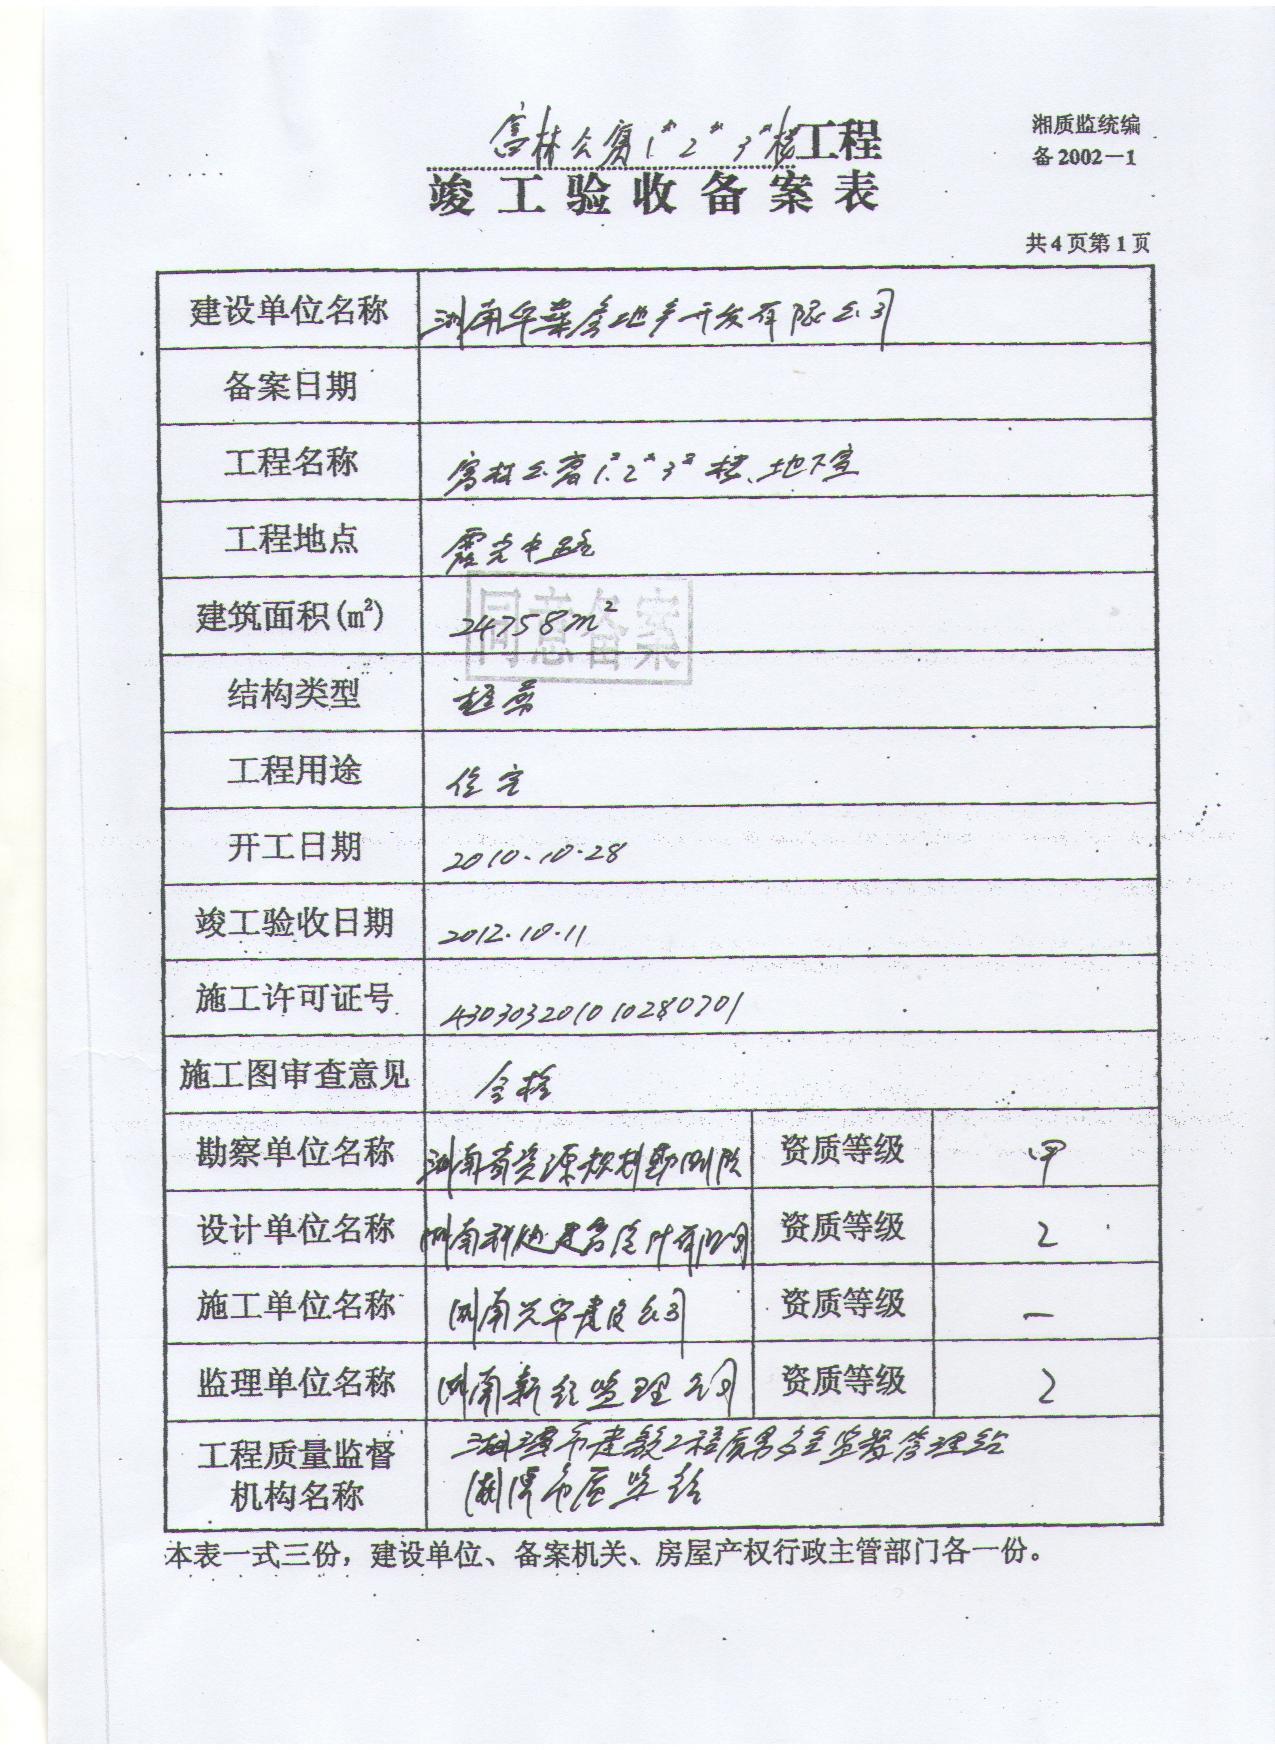 富林公寓1#2#3#栋工程
湘质监统编
备2002—1
竣工验收备案表
共4页第1页
建设单位名称 湖南华葉房地产开发有限公司
备案日期
工程名称 富林公寓1#2#3#栋、地下室
工程地点 霞光中路
建筑面积(m²) 24758m²
同意备案
结构类型 框剪
工程用途 住宅
开工日期 2010.10.28
竣工验收日期 2012.10.11
施工许可证号 430303201010280701
施工图审查意见 合格
勘察单位名称 湖南省资源规划勘测院 资质等级 甲
设计单位名称 湖南 建筑设计有限公司 资质等级 2
施工单位名称 湖南兴华建设公司 资质等级 一
监理单位名称 湖南新 监理公司 资质等级 2
工程质量监督 湘潭市建筑工程质量安全监督管理站
机构名称 湘潭市质监站
本表一式三份，建设单位、备案机关、房屋产权行政主管部门各一份。